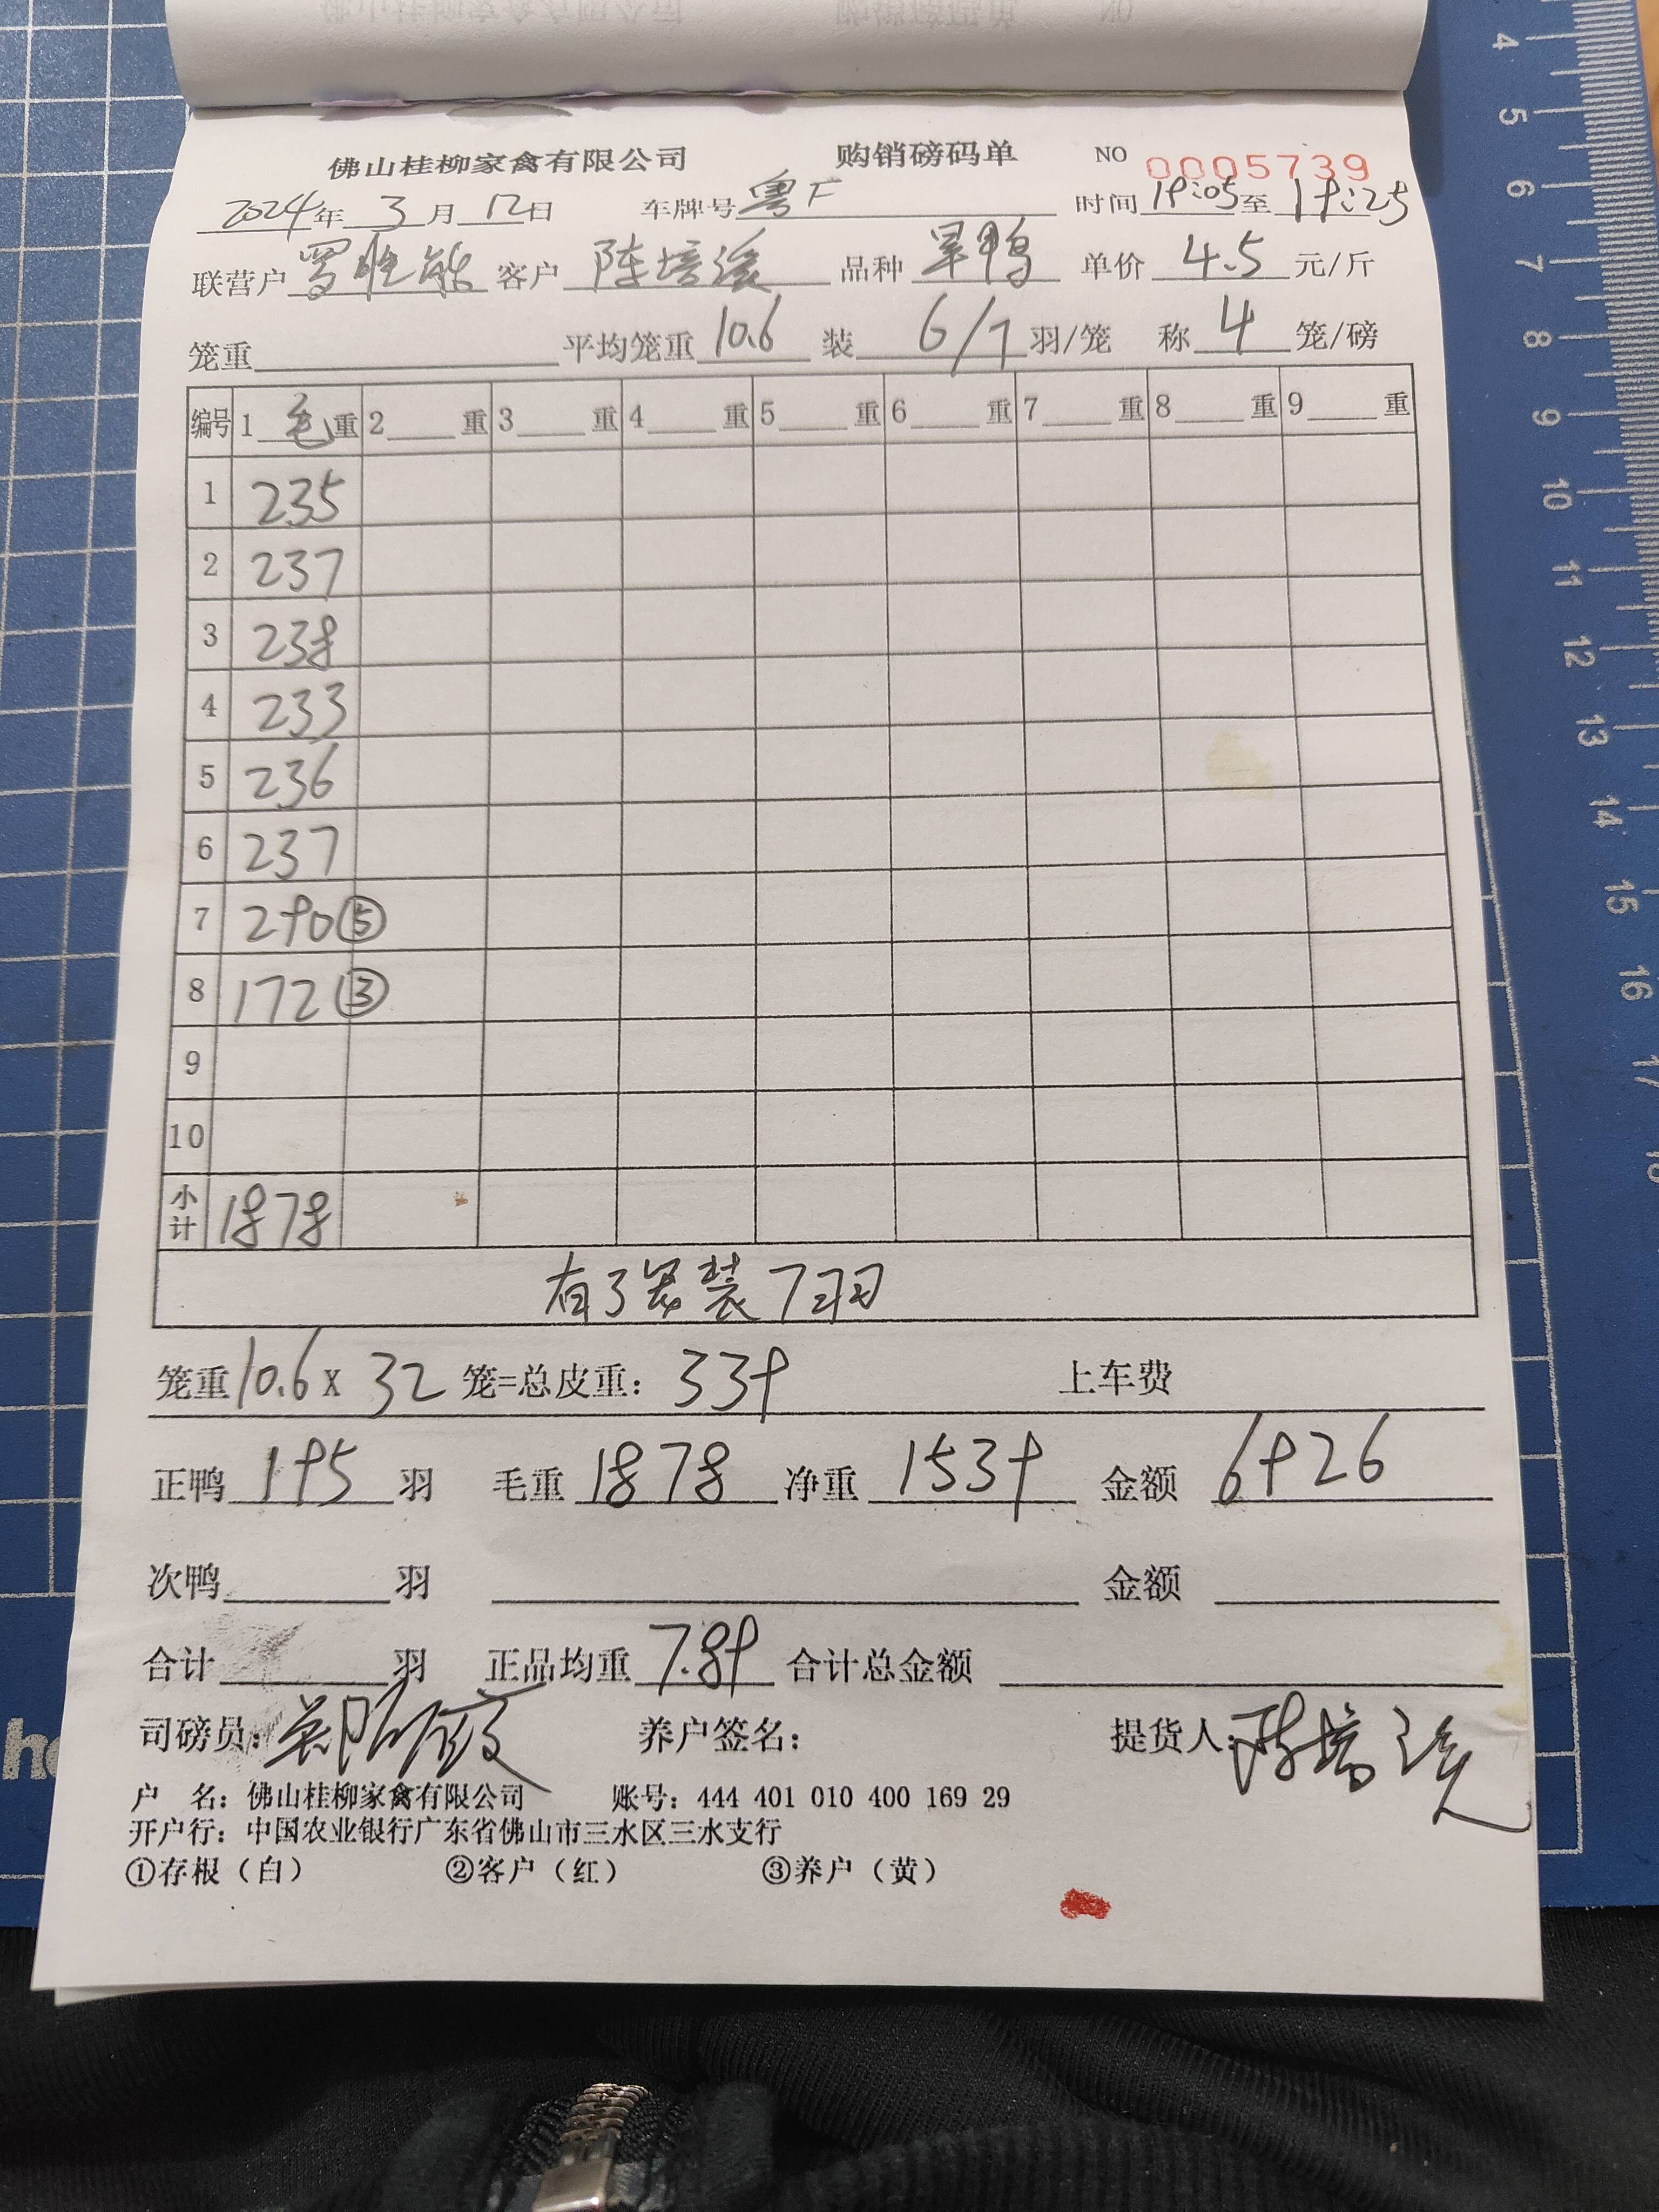 佛山桂柳家禽有限公司 购销磅码单 NO 0005739
2024年 3月 12日 车牌号 粤F 时间 19:05 至 19:25
联营户 罗胜能 客户 陈培 品种 旱鸭 单价 4.5 元/斤
笼重 平均笼重 10.6 装 6/7 羽/笼 称 4 笼/磅
编号 1 毛 重 2 重 3 重 4 重 5 重 6 重 7 重 8 重 9 重
1 235
2 237
3 238
4 233
5 236
6 237
7 290 ⑤
8 172 ③
9
10
小计 1878
有3笼装7羽
笼重 10.6 X 32 笼=总皮重: 339 上车费
正鸭 195 羽 毛重 1878 净重 1539 金额 6926
次鸭 羽 金额
合计 羽 正品均重 7.89 合计总金额
司磅员: 养户签名: 提货人: 陈培
户 名: 佛山桂柳家禽有限公司 账号: 444 401 010 400 169 29
开户行: 中国农业银行广东省佛山市三水区三水支行
①存根(白) ②客户(红) ③养户(黄)
4
5
6
7
8
9
10
11
12
13
14
15
16